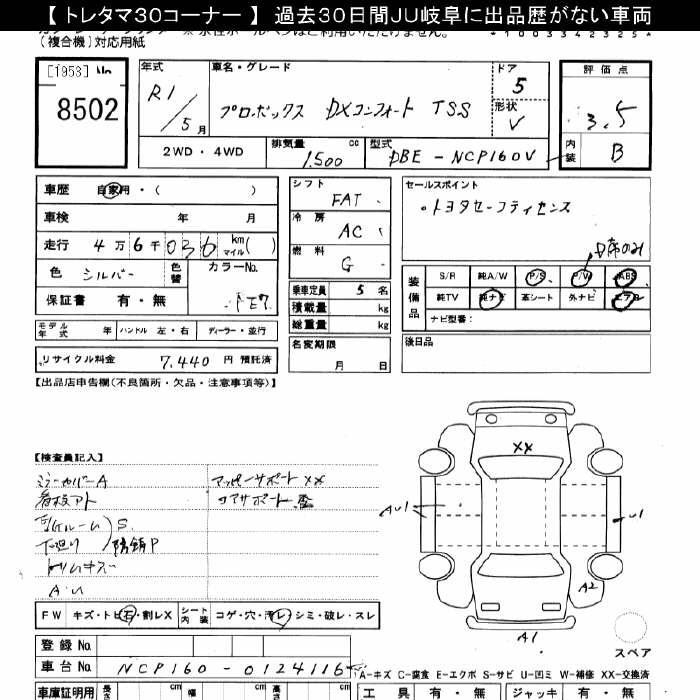 【 トレタマ30コーナー 】 過去30日間JU岐阜に出品歴がない車両
(複合機)対応用紙
*1003342325*
[1953] No
8502
年式
R1/5月
車名・グレード
プロボックス DXコンフォート TSS
ドア
5
形状
V
評価点
3.5
内装
B
2WD・4WD
排気量
1,500 cc
型式
DBE-NCP160V
車歴 自家用・( )
車検 年 月
走行 4万6千036 km マイル( )
色 シルバー 色替 カラーNo.
1E7
保証書 有・無
モデル年式 年 ハンドル 左・右 ディーラー・並行
リサイクル料金 7,440 円 預託済
シフト
FAT
冷房
AC
燃料
G
乗車定員 5 名
積載量 kg
総重量 kg
名変期限
月 日
セールスポイント
・トヨタセーフティセンス
装備品
S/R 純A/W P/S P/W ABS
純TV 純ナビ 革シート 外ナビ エアB
ナビ型番:
後日品
【出品店申告欄(不良箇所・欠品・注意事項等)】
【検査員記入】
ミラーカバーA
看板アト
下廻り
S
P
トリムキズ
A・U
アッパーサポート XX
コアサポート
FW キズ・トビ石・割レX シート内装 コゲ・穴・汚レ・シミ・破レ・スレ
XX
AU1
U1
A2
A1
スペア
登録 No.
車台 No. NCP160-0124116
A-キズ C-腐食 E-エクボ S-サビ U-凹ミ W-補修 XX-交換済
車庫証明用 長さ cm 幅 cm cm
工具 有・無 ジャッキ 有・無